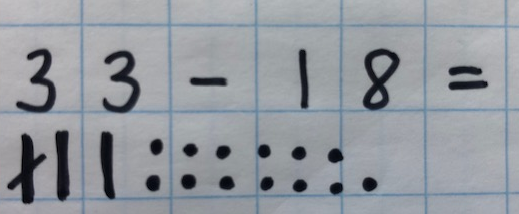 33 - 18 =